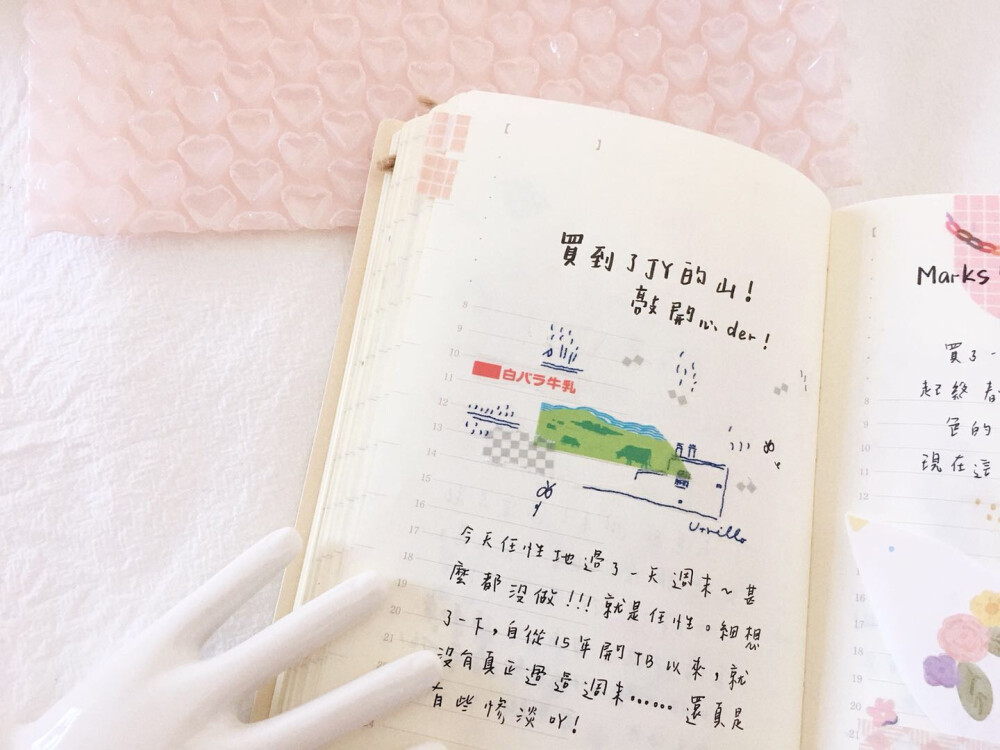 買到了JY的山!
敲開心der!
8
9
10
白バラ牛乳
11
12
13
14
15
16
17
18
19
20
21
Utrillo
今天任性地過了一天週末~甚
麼都沒做!!!就是任性。細想
了一下,自從15年開TB以來,就
沒有真正過過週末……還真是
有些慘淡吖!
Marks
買了一
起終
色的
現在這
8
9
10
11
12
16
17
18
19
20
21